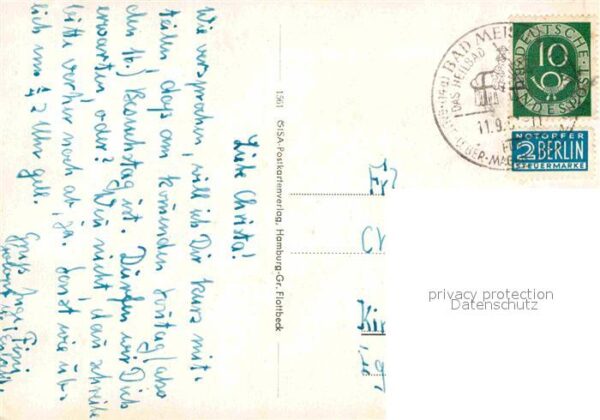 Liebe Christa!
Wie versprochen, will ich Dir kurz mit-
teilen, dass am kommenden Sonntag (also
den 16.) Besuchstag ist. Dürfen wir Dich
erwarten, oder? Wenn nicht, dann schreibe
bitte vorher noch ab, ja. Sonst wie üb-
lich um ½ 2 Uhr
Gruß
1561 ISA-Postkartenverlag, Hamburg-Gr. Flottbeck
BAD MEIN
DAS HEILBAD
11.9.5
10
DEUTSCHE
BUNDESPOST
NOTOPFER
2 BERLIN
STEUERMARKE
privacy protection
Datenschutz